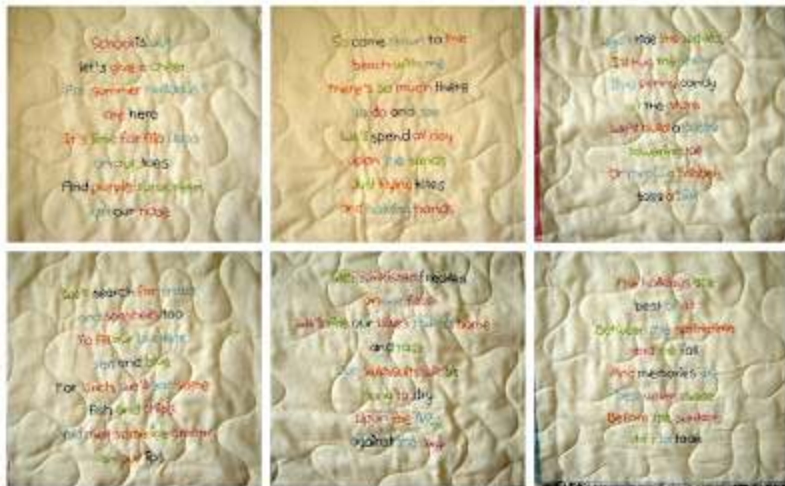 School is out
let's give a cheer
For summer holidays
are here
It's time for flip flops
on our toes
And purple sunscreen
on our nose
So come down to the
beach with me
There's so much there
to do and see
We'll spend all day
upon the sands
Just flying kites
and holding hands
ride the
I'll hug my
penny candy
the stars
We'll build a
towering tall
Or maybe
toss a ball
We'll search for
and seashells too
To fill our buckets
and blue
For lunch we'll have some
fish and chips
And then some ice cream
on our lips
freckles
on our face
We'll ride our waves home
and race
Our swimsuits will be
hung to dry
Upon the
against the sky
The holidays are
best of all
Between the springtime
and the fall
And memories are
best when made
Before the
start to fade